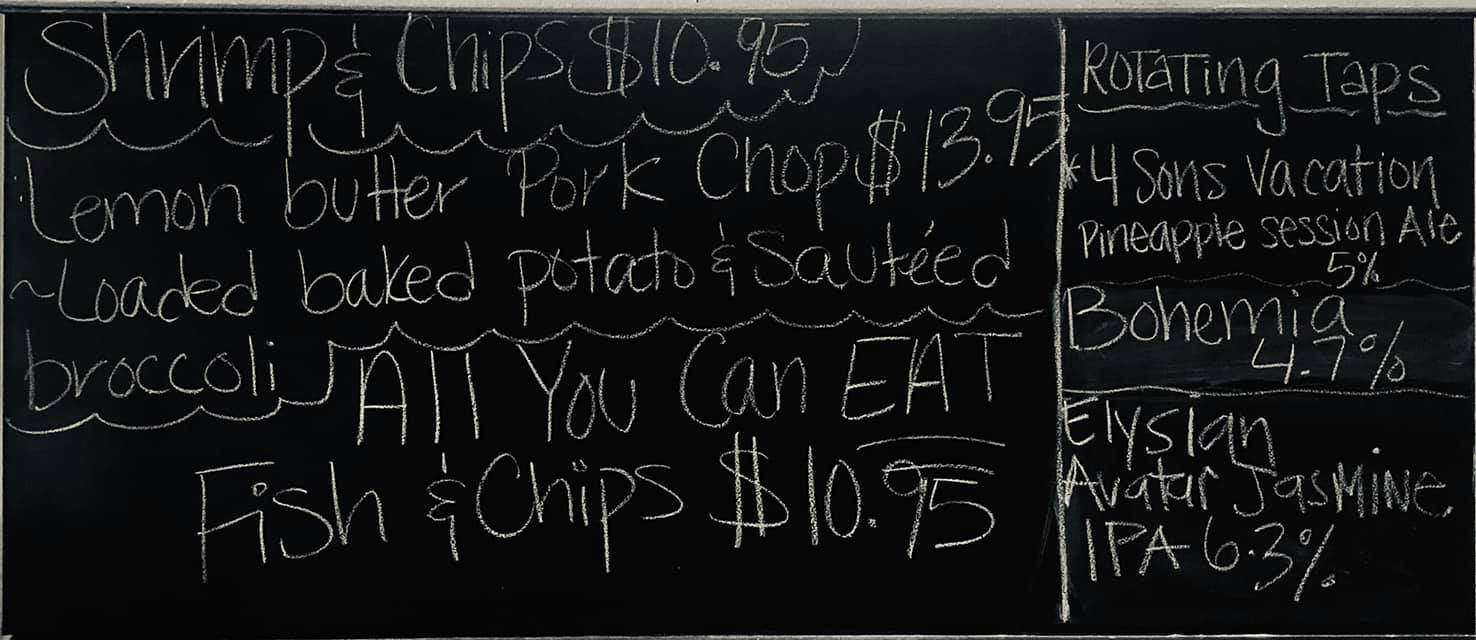 Shrimp & Chips $10.95
Lemon butter Pork Chop $13.95
~Loaded baked potato & Sautéed
broccoli
All You Can EAT
Fish & Chips $10.95
Rotating Taps
*4 Sons Vacation
Pineapple session Ale
5%
Bohemia
4.7%
Elysian
Avatar Jasmine
IPA 6.3%